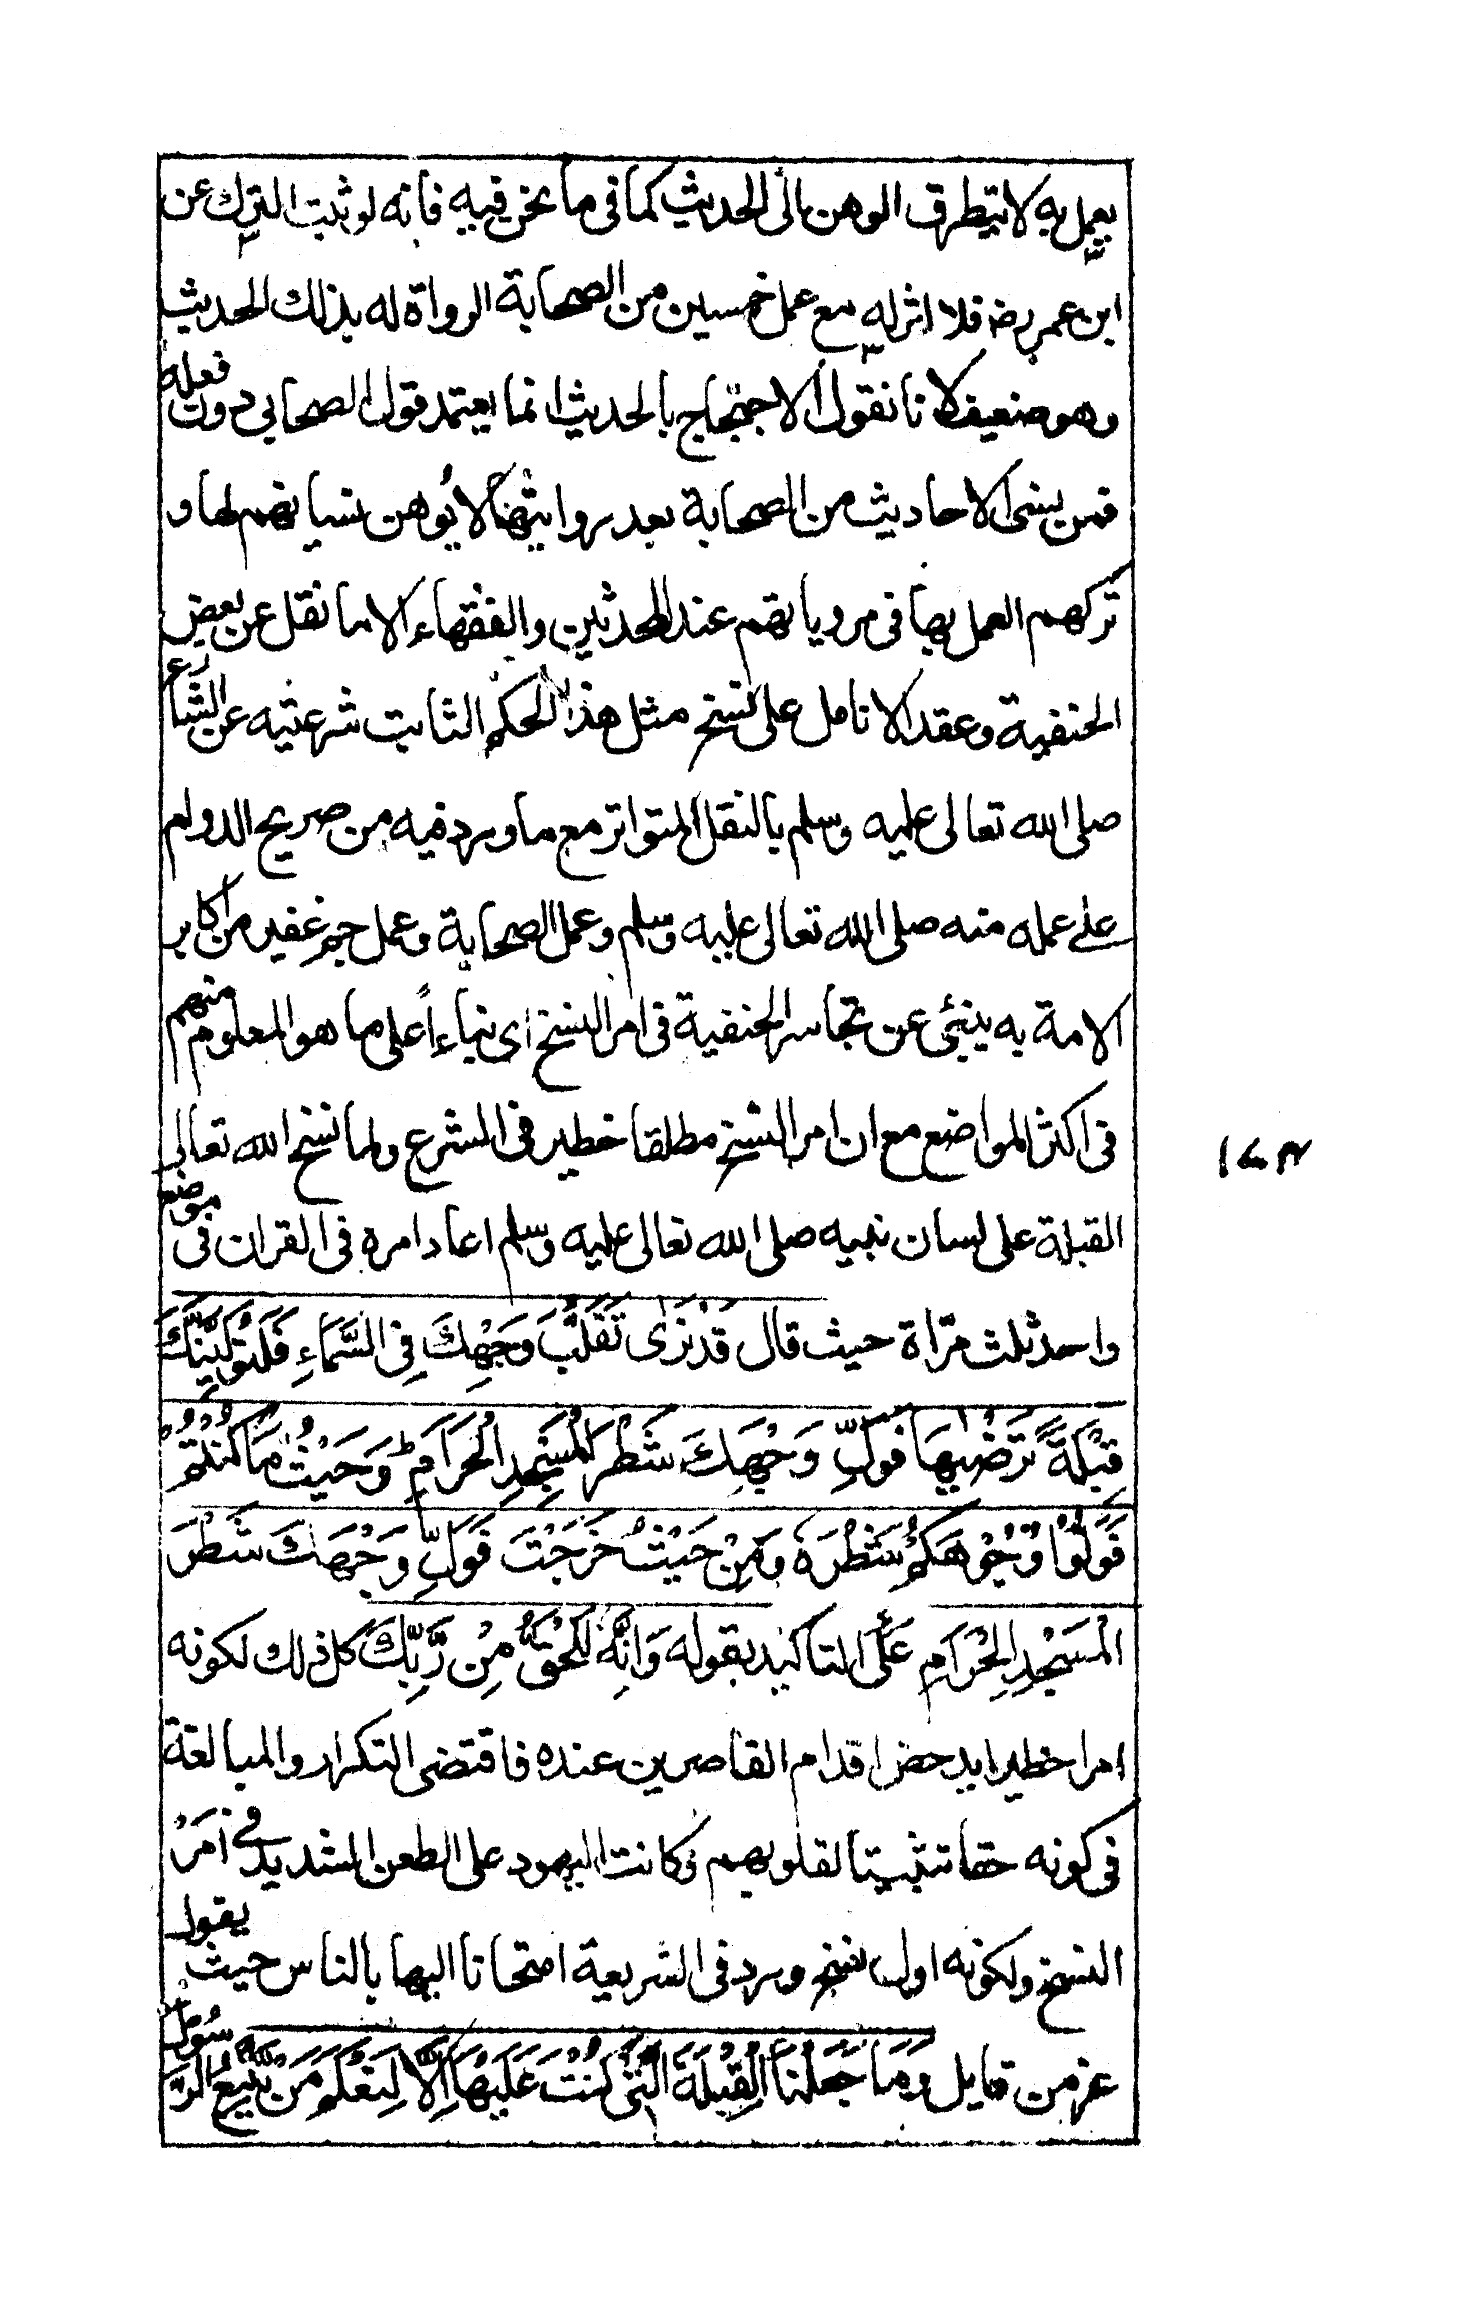 يعمل به لا يتطرق الوهن الى الحديث كما في ما نحن فيه فانه لو ثبت الترك عن
ابن عمر رضـ فلا اثر له مع عمل خمسين من الصحابة الرواة له بذلك الحديث
وهو ضعيف لانا نقول الاحتجاج بالحديث انما يعتمد قول الصحابي دون فعله
فمن ينسى الاحاديث من الصحابة بعد روايتها لا يُوهن نسيانهم لها و
تركهم العمل بها في مروياتهم عند المحدثين والفقهاء الا ما نقل عن بعض
الحنفية وعقد الانامل على نسخ مثل هذا الحكم الثابت شرعيته عن الشارع
صلى الله تعالى عليه وسلم بالنقل المتواتر مع ما ورد فيه من صريح الدوام
على عمله منه صلى الله تعالى عليه وسلم وعمل الصحابة وعمل جم غفير من اكابر
الامة به ينبئ عن تجاسر الحنفية في امر النسخ اى بناءاً على ما هو المعلوم منهم
في اكثر المواضع مع ان امر النسخ مطلقا خطير في الشرع ولما نسخ الله تعالى
القبلة على لسان نبيه صلى الله تعالى عليه وسلم اعاد امره في القران في موضع
واحد ثلث مرّاة حيث قال قَدْ نَرٰى تَقَلُّبَ وَجْهِكَ فِي السَّمَاءِ فَلَنُوَلِّيَنَّكَ
قِبْلَةً تَرْضٰيهَا فَوَلِّ وَجْهَكَ شَطْرَ الْمَسْجِدِ الْحَرَامِ وَحَيْثُ مَا كُنْتُمْ
فَوَلُّوْا وُجُوْهَكُمْ شَطْرَهٗ وَمِنْ حَيْثُ خَرَجْتَ فَوَلِّ وَجْهَكَ شَطْرَ
الْمَسْجِدِ الْحَرَامِ عَلَى التاكيد بقوله وَاِنَّهٗ لَلْحَقُّ مِنْ رَّبِّكَ كل ذلك لكونه
امرا خطيرا يدحض اقدام القاصرين عنده فاقتضى التكرار والمبالغة
في كونه حقا تثبيتا لقلوبهم وكانت اليهود على الطعن الشديد في اَمْرُ
النسخ ولكونه اول نسخ ورد في الشريعة امتحانا اليها بالناس حيث يقول
عز من قايل وَمَا جَعَلْنَا الْقِبْلَةَ الَّتِيْ كُنْتَ عَلَيْهَا اِلَّا لِنَعْلَمَ مَنْ يَّتَّبِعُ الرَّسُوْلَ